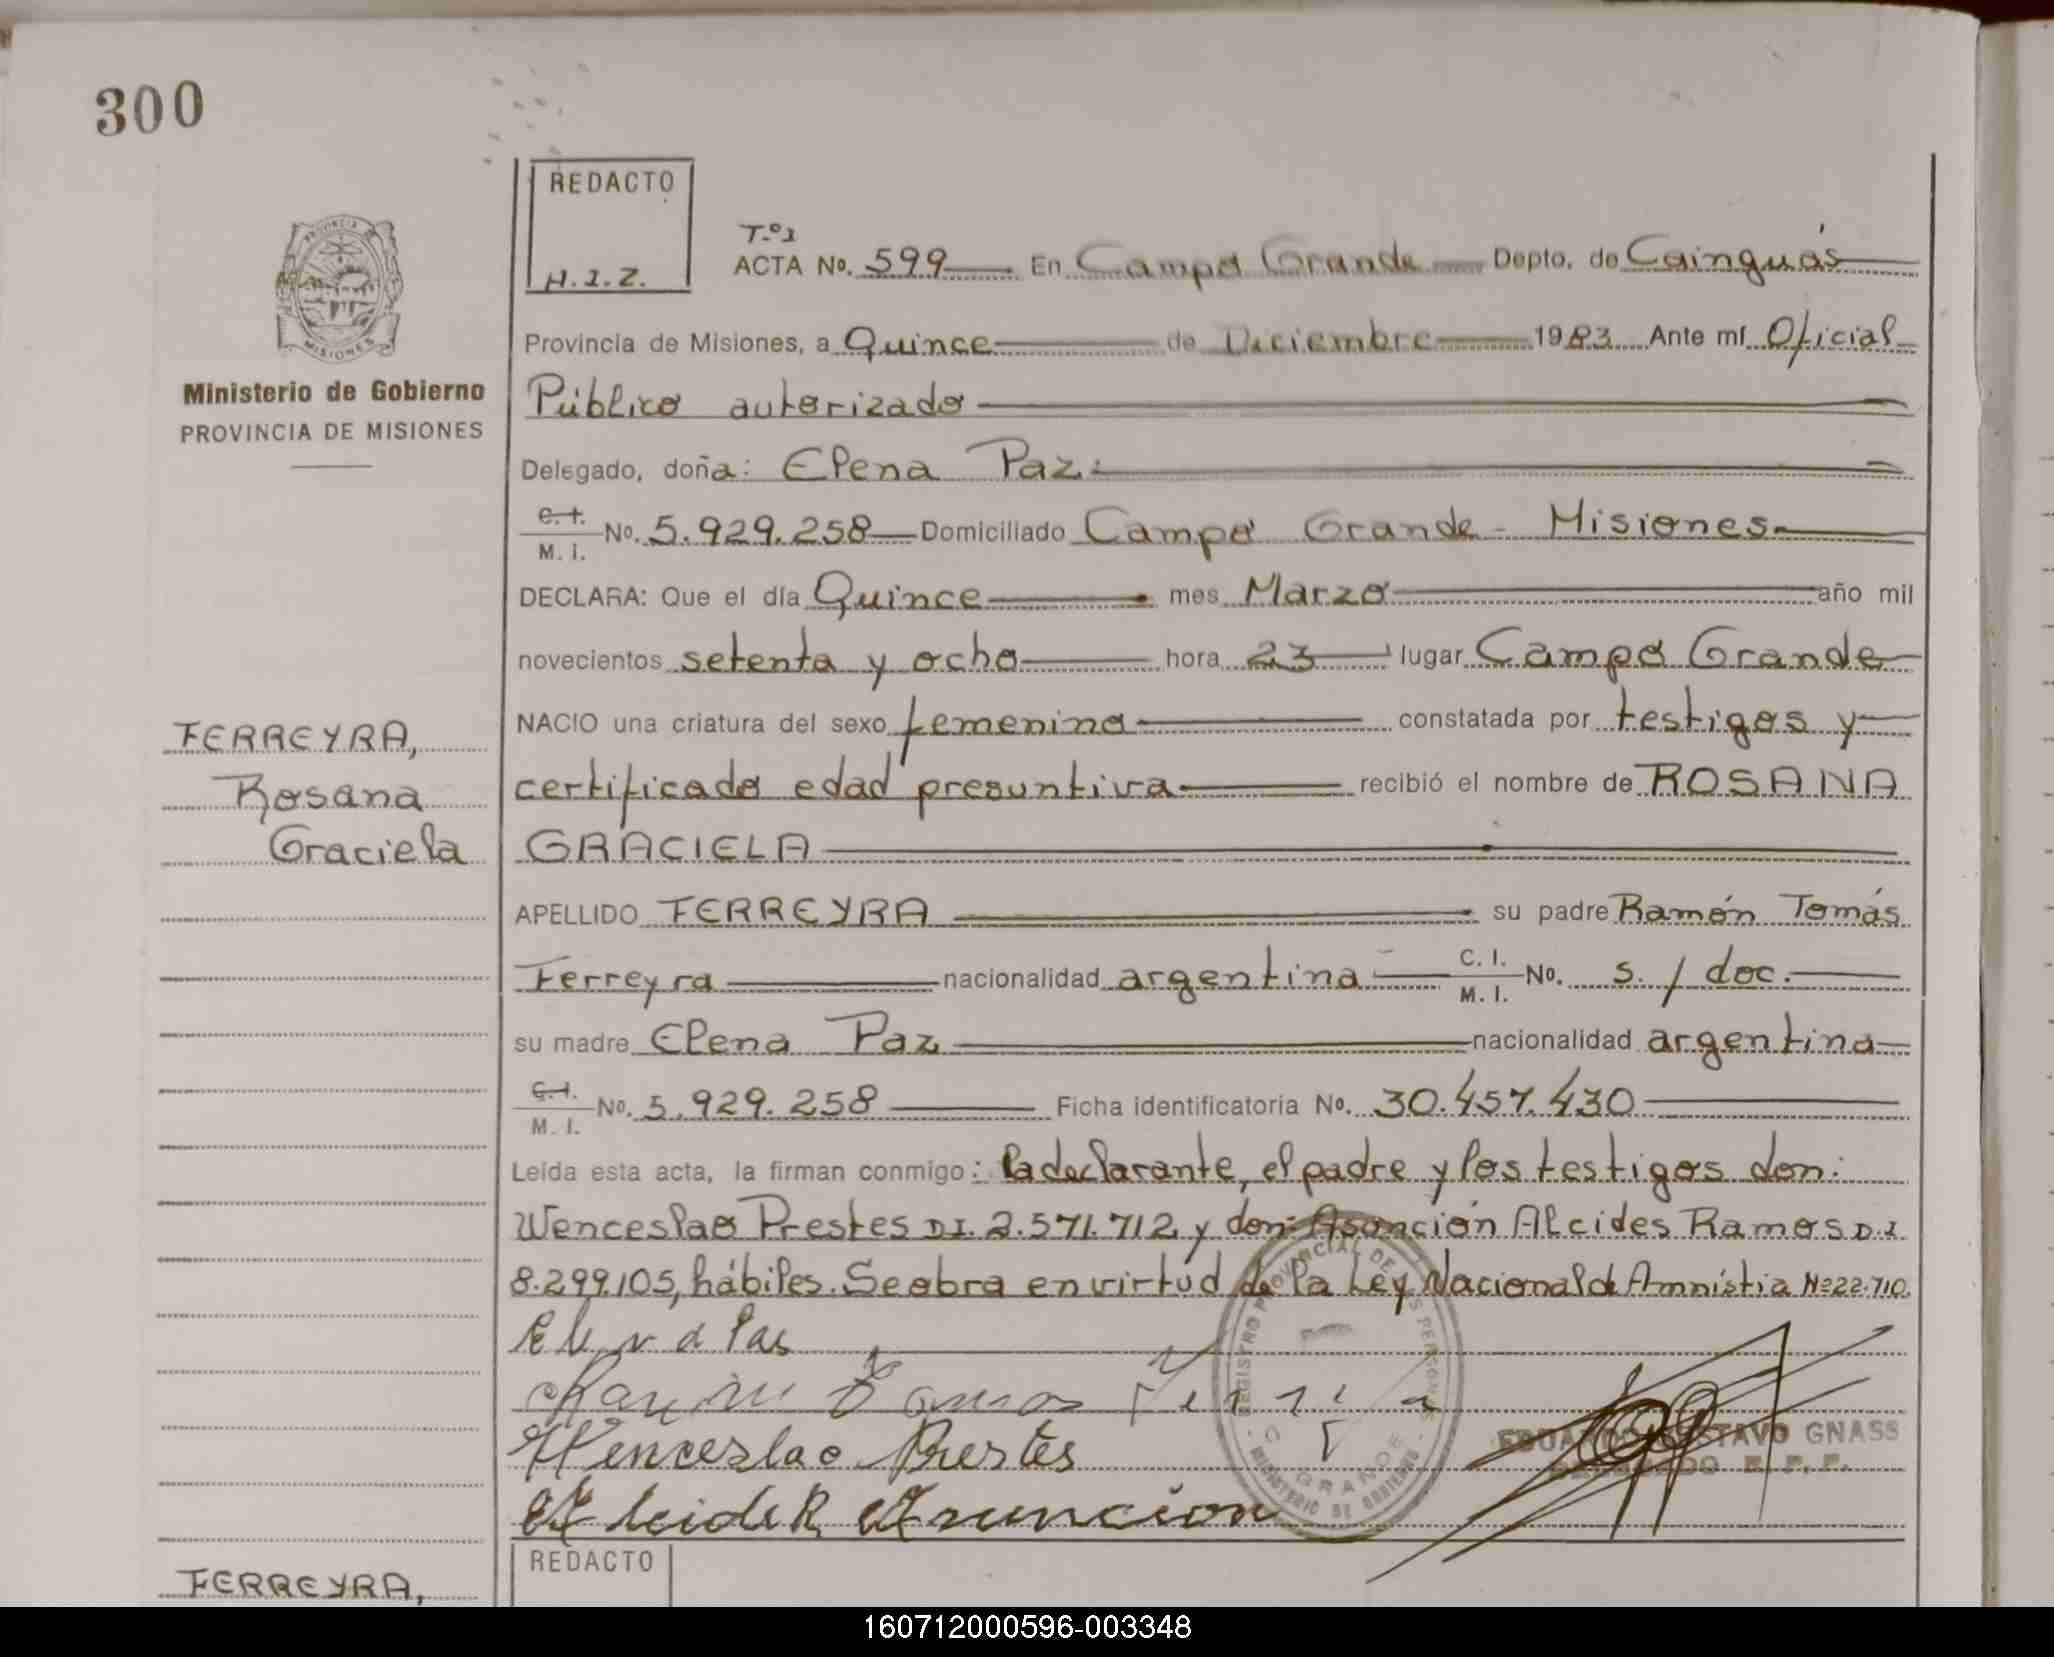 300
REDACTO
H.I.Z.
T-º1
ACTA No. 599 En Campo Grande Depto. de Cainguás
PROVINCIA DE
MISIONES
Provincia de Misiones, a Quince de Diciembre 1983 Ante mí Oficial
Ministerio de Gobierno
PROVINCIA DE MISIONES
Público autorizado
Delegado, doña: Elena Paz
C.I. M. I. No. 5.929.258 Domiciliado Campo Grande - Misiones
DECLARA: Que el día Quince mes Marzo año mil
novecientos setenta y ocho hora 23 lugar Campo Grande
FERREYRA,
Rosana
Graciela
NACIO una criatura del sexo femenina constatada por testigos y
certificado edad presuntiva recibió el nombre de ROSANA
GRACIELA
APELLIDO FERREYRA su padre Ramón Tomás
Ferreyra nacionalidad argentina C. I. M. I. No. s./doc.
su madre Elena Paz nacionalidad argentina
C.I. M. I. No. 5.929.258 Ficha identificatoria No. 30.457.430
Leída esta acta, la firman conmigo: la declarante, el padre y los testigos don:
Wenceslao Prestes D.I. 2.571.712 y don: Asunción Alcides Ramos D.I.
8.299.105, hábiles. Se obra en virtud de la Ley Nacional de Amnistia Nº 22.710.
REGISTRO PROVINCIAL DE LAS PERSONAS
MINISTERIO DE GOBIERNO
GRANDE
Wenceslao Prestes
EDUARDO GUSTAVO GNASS
Asuncion
REDACTO
FERREYRA,
160712000596-003348